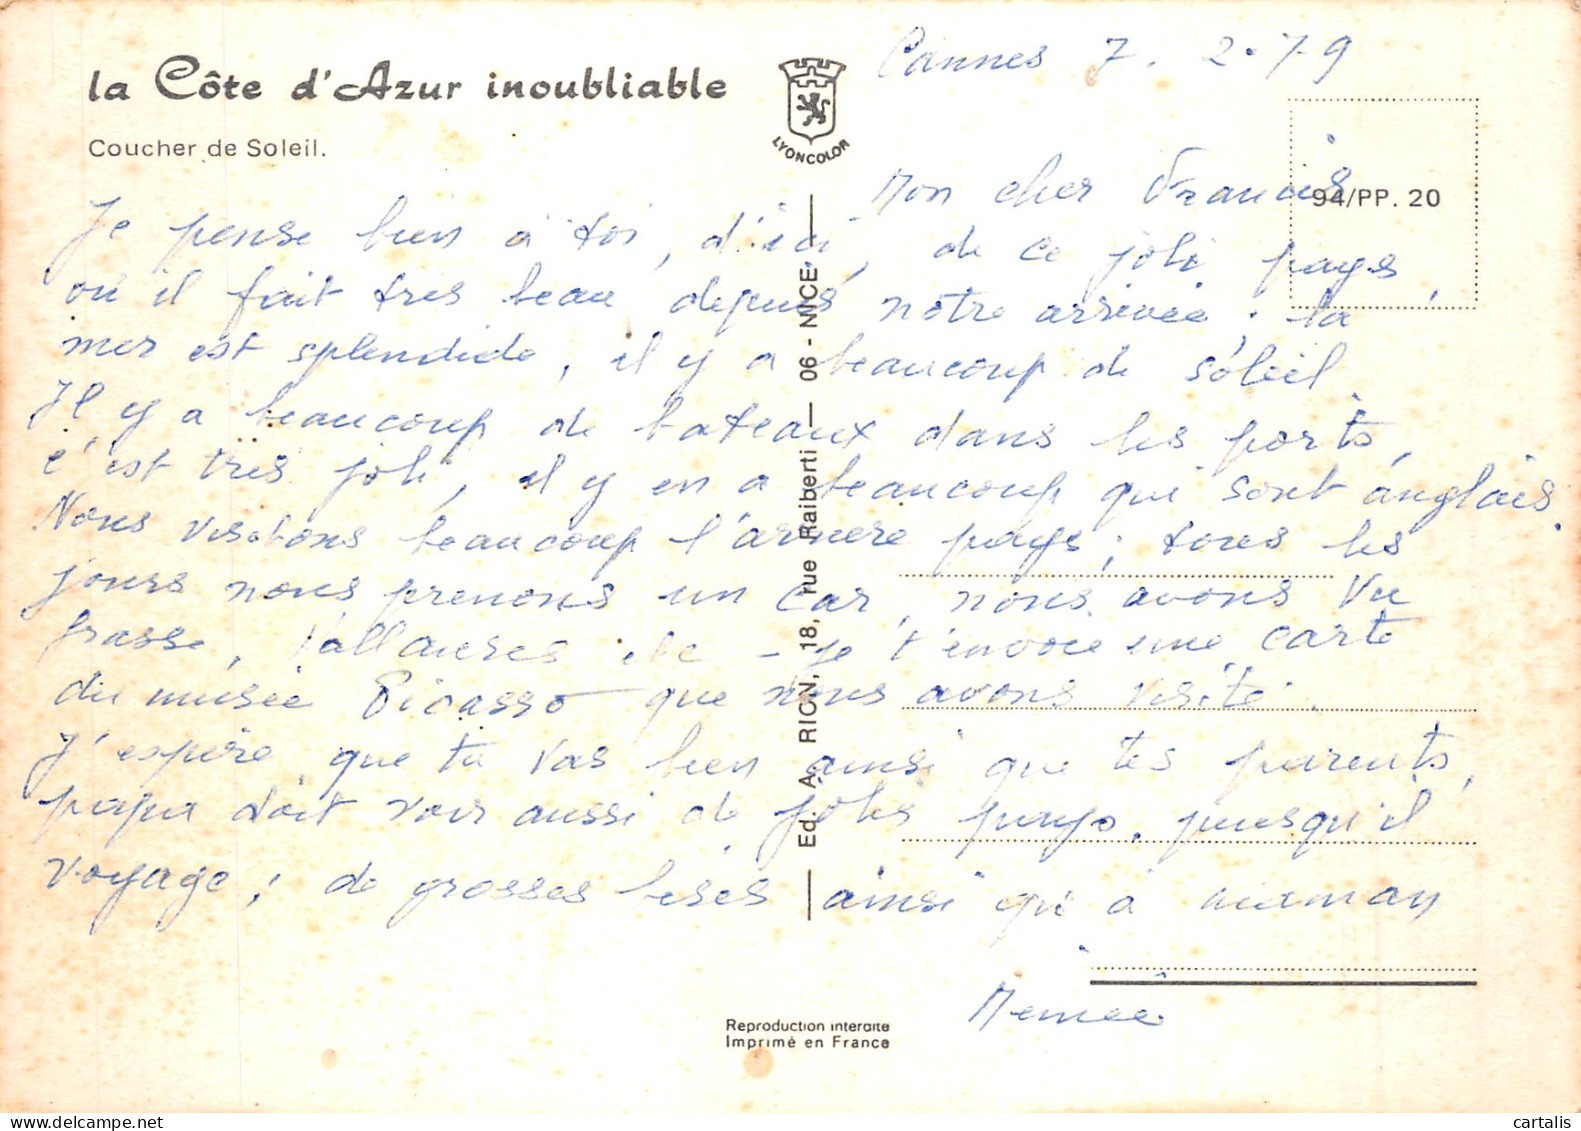 la Côte d'Azur inoubliable
Coucher de Soleil.
LYONCOLOR
Cannes 7. 2. 79
94/PP. 20
Mon cher Francis
Je pense bien à toi, d'ici, de ce joli pays,
où il fait très beau depuis notre arrivée. la
mer est splendide, il y a beaucoup de soleil.
Il y a beaucoup de bateaux dans les ports,
c'est très joli, il y en a beaucoup qui sont anglais.
Nous visitons beaucoup l'arrière pays; tous les
jours nous prenons un car, nous avons vu
grasse, Vallauris etc - je t'envoie une carte
du musée Picasso que nous avons visité.
J'espère que tu vas bien ainsi que tes parents,
papa doit voir aussi de jolis pays, puisqu'il
voyage; de grosses bises ainsi qu'à maman
Mémée
Ed. A. RION, 18, rue Raiberti - 06 - NICE
Reproduction interdite
Imprimé en France
cartalis